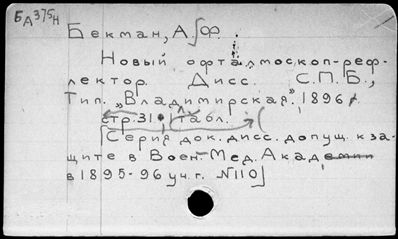 БА375Н
Бекман, А. Ф.
Новый офталмоскоп-реф-
лектор. Дисс. С.П.Б.,
Тип. „Владимирская", 1896.
стр. 31. 1 табл.
[Серия док. дисс. допущ. к за-
щите в Воен.-Мед. Академии
в 1895-96 уч. г. №110]